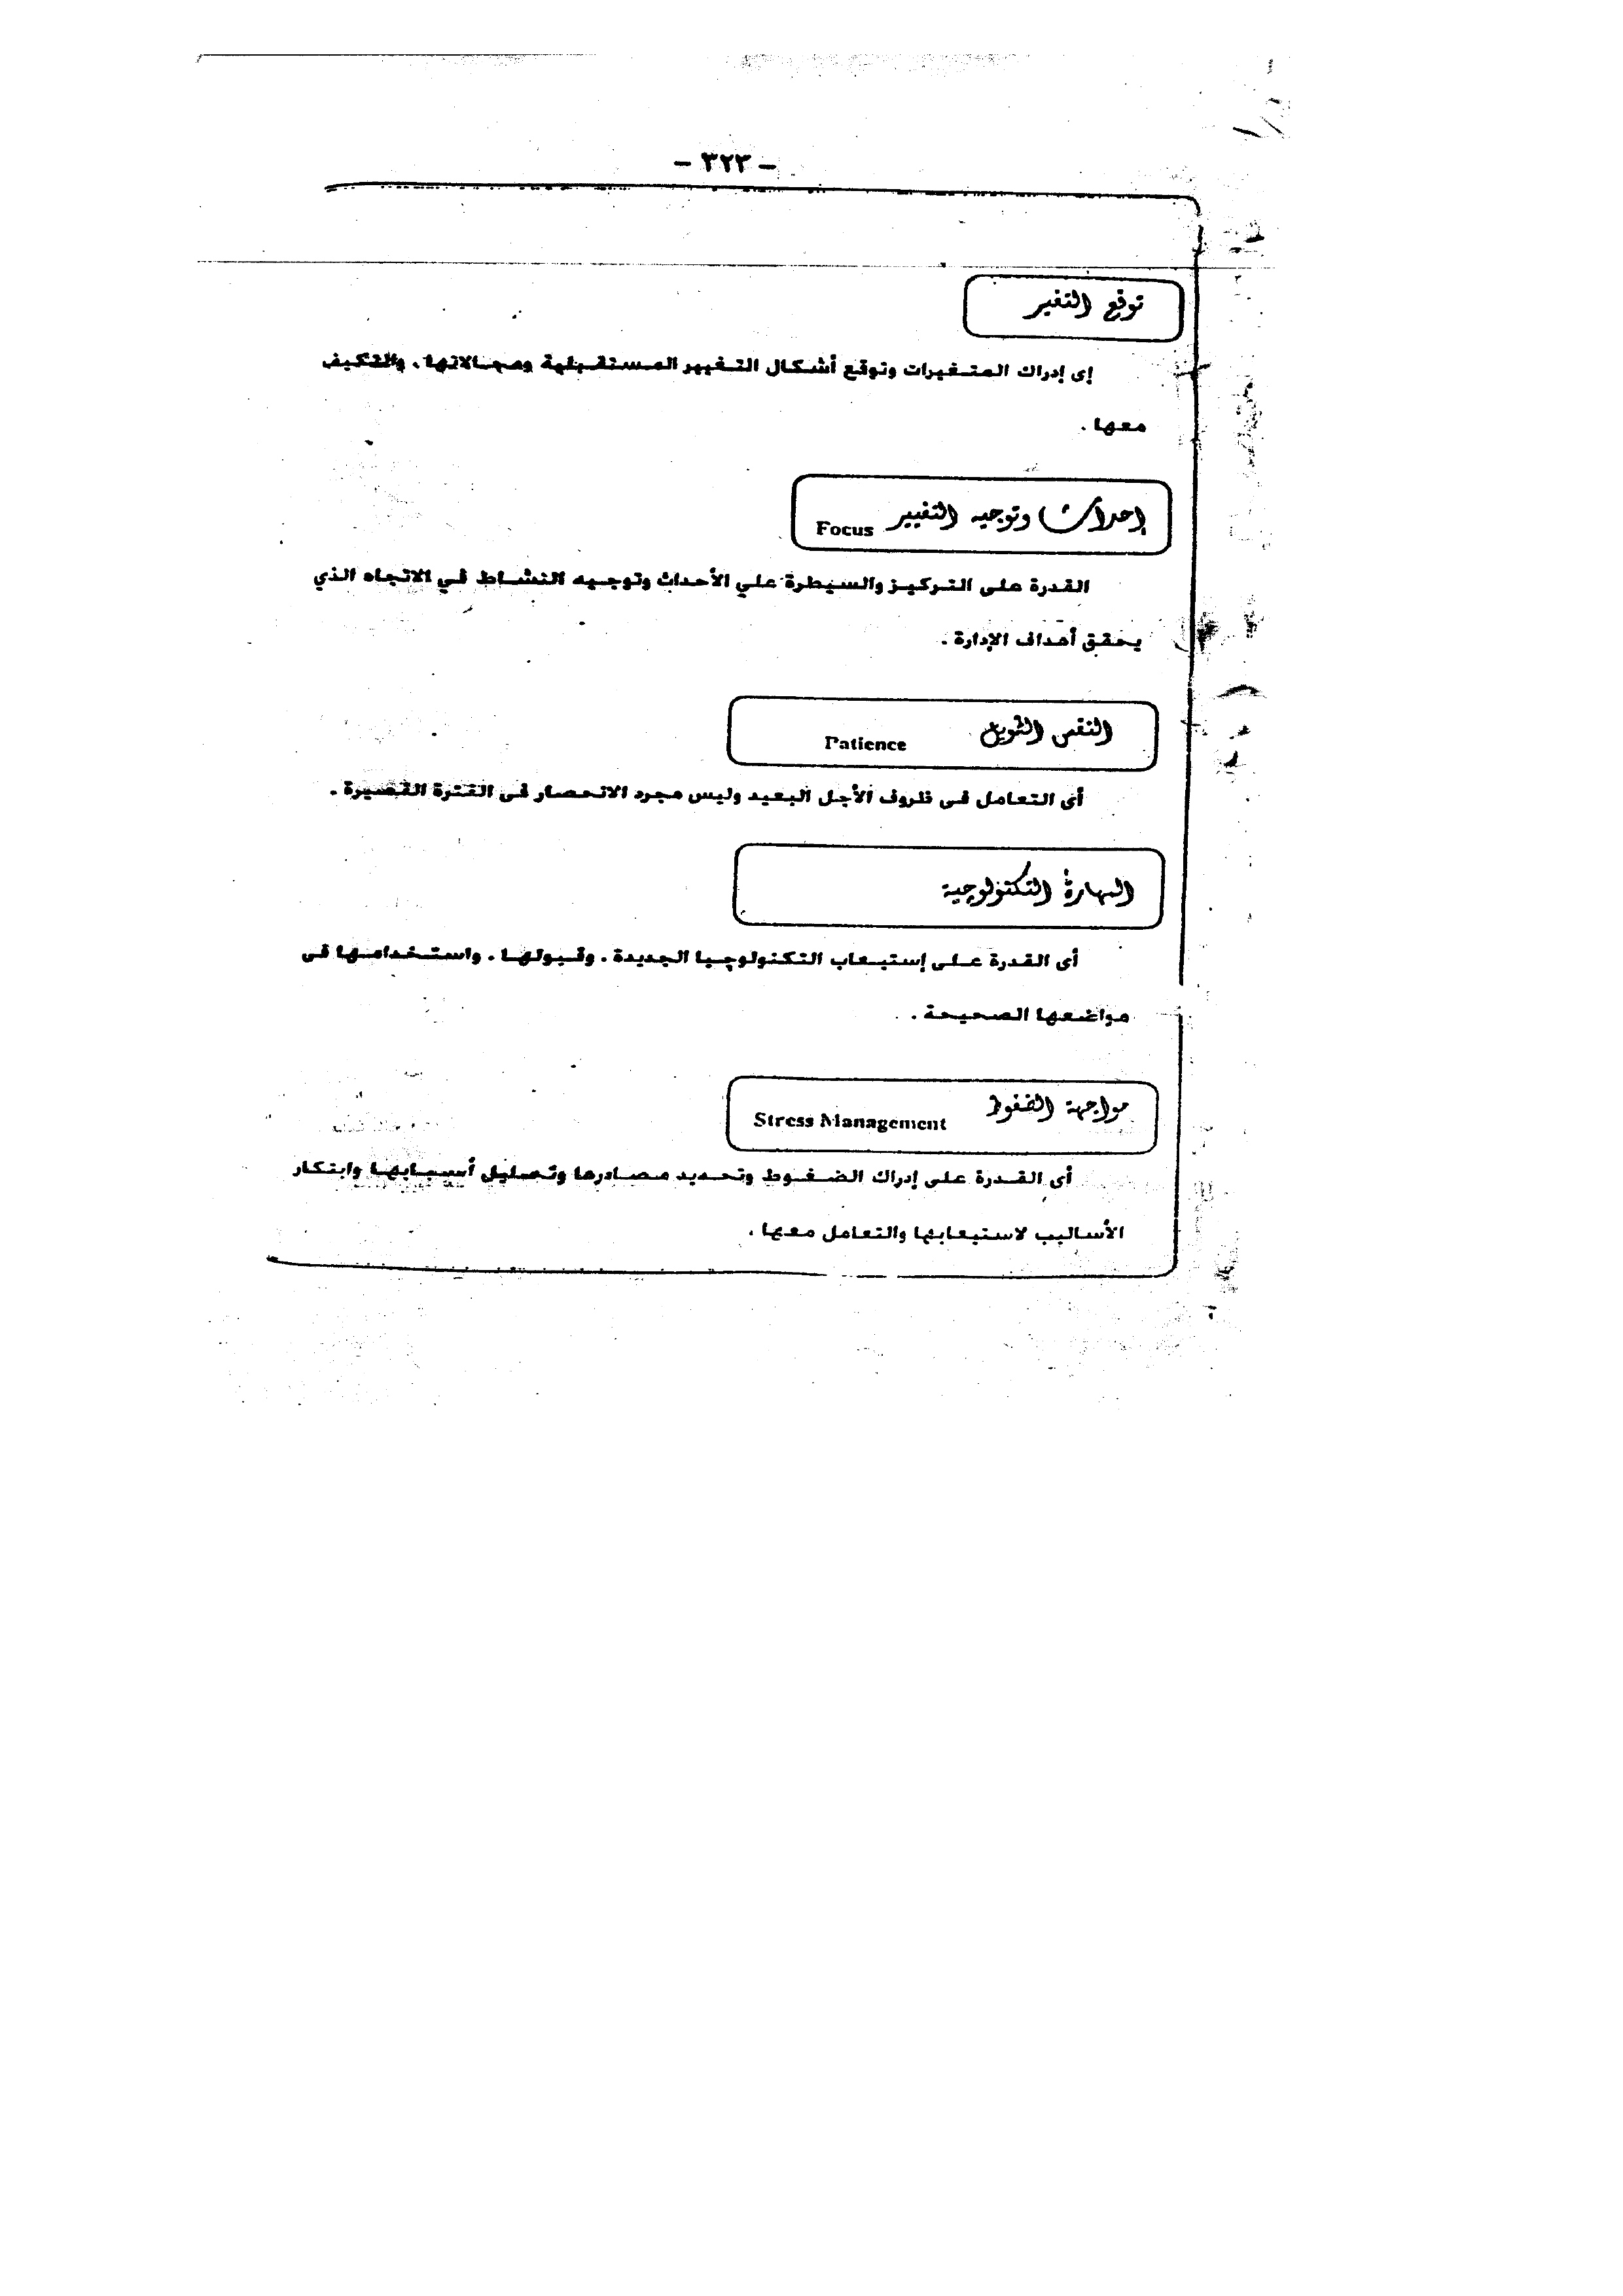 - ٣٢٣ -
توقع التغير
إى إدراك المتغيرات وتوقع أشكال التغيير المستقبلية ومجالاتها . والتكيف
معها .
إحداث وتوجيه التغيير Focus
القدرة على التركيز والسيطرة علي الأحداث وتوجيه النشاط في الاتجاه الذي
يحقق أهداف الإدارة .
النفس الطويل Patience
أى التعامل فى ظروف الأجل البعيد وليس مجرد الانحصار فى الفترة القصيرة .
المهارة التكنولوجية
أى القدرة على إستيعاب التكنولوجيا الجديدة . وقبولها . واستخدامها فى
مواضعها الصحيحة .
مواجهة الضغوط Stress Management
أى القدرة على إدراك الضغوط وتحديد مصادرها وتحليل أسبابها وابتكار
الأساليب لاستيعابها والتعامل معها .